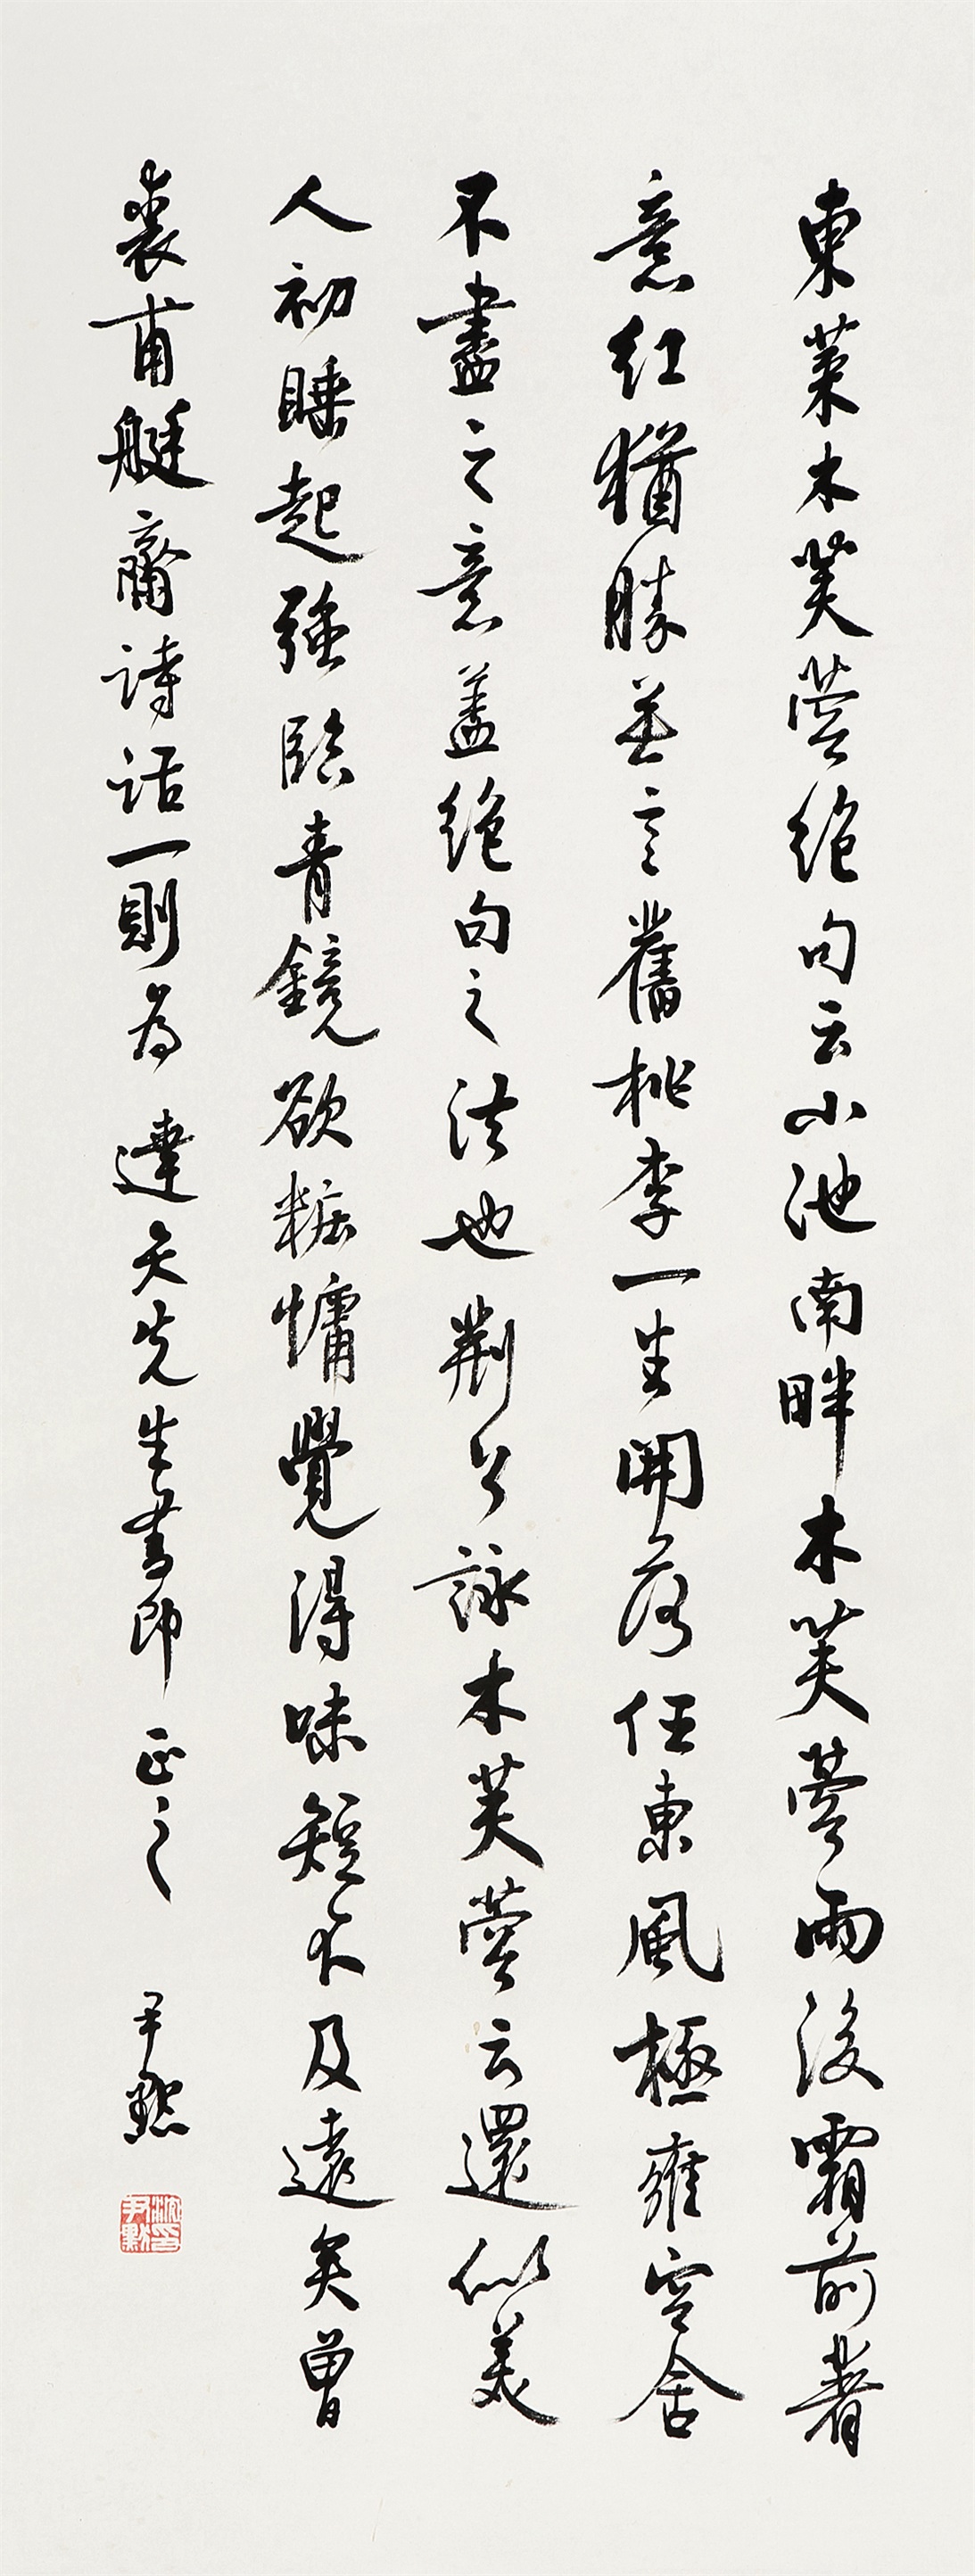 東萊木芙蓉絕句云小池南畔木芙蓉雨後霜前著
意紅猶勝無言舊桃李一生開落任東風極雍容含
不盡之意蓋絕句之法也荆公詠木芙蓉云還似美
人初睡起強臨青鏡欲粧慵覺得味短不及遠矣曾
裘甫艇齋詩話一則為 達夫先生書即 正之 尹默
沈尹默印